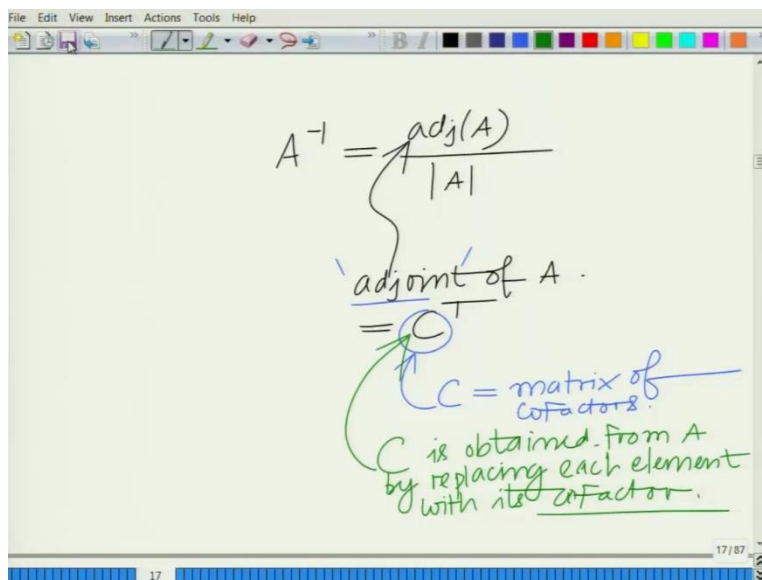 File Edit View Insert Actions Tools Help
B I
A⁻¹ = adj(A)
|A|
'adjoint' of A .
= Cᵀ
C = matrix of
cofactors.
C is obtained from A
by replacing each element
with its cofactor.
17/87
17